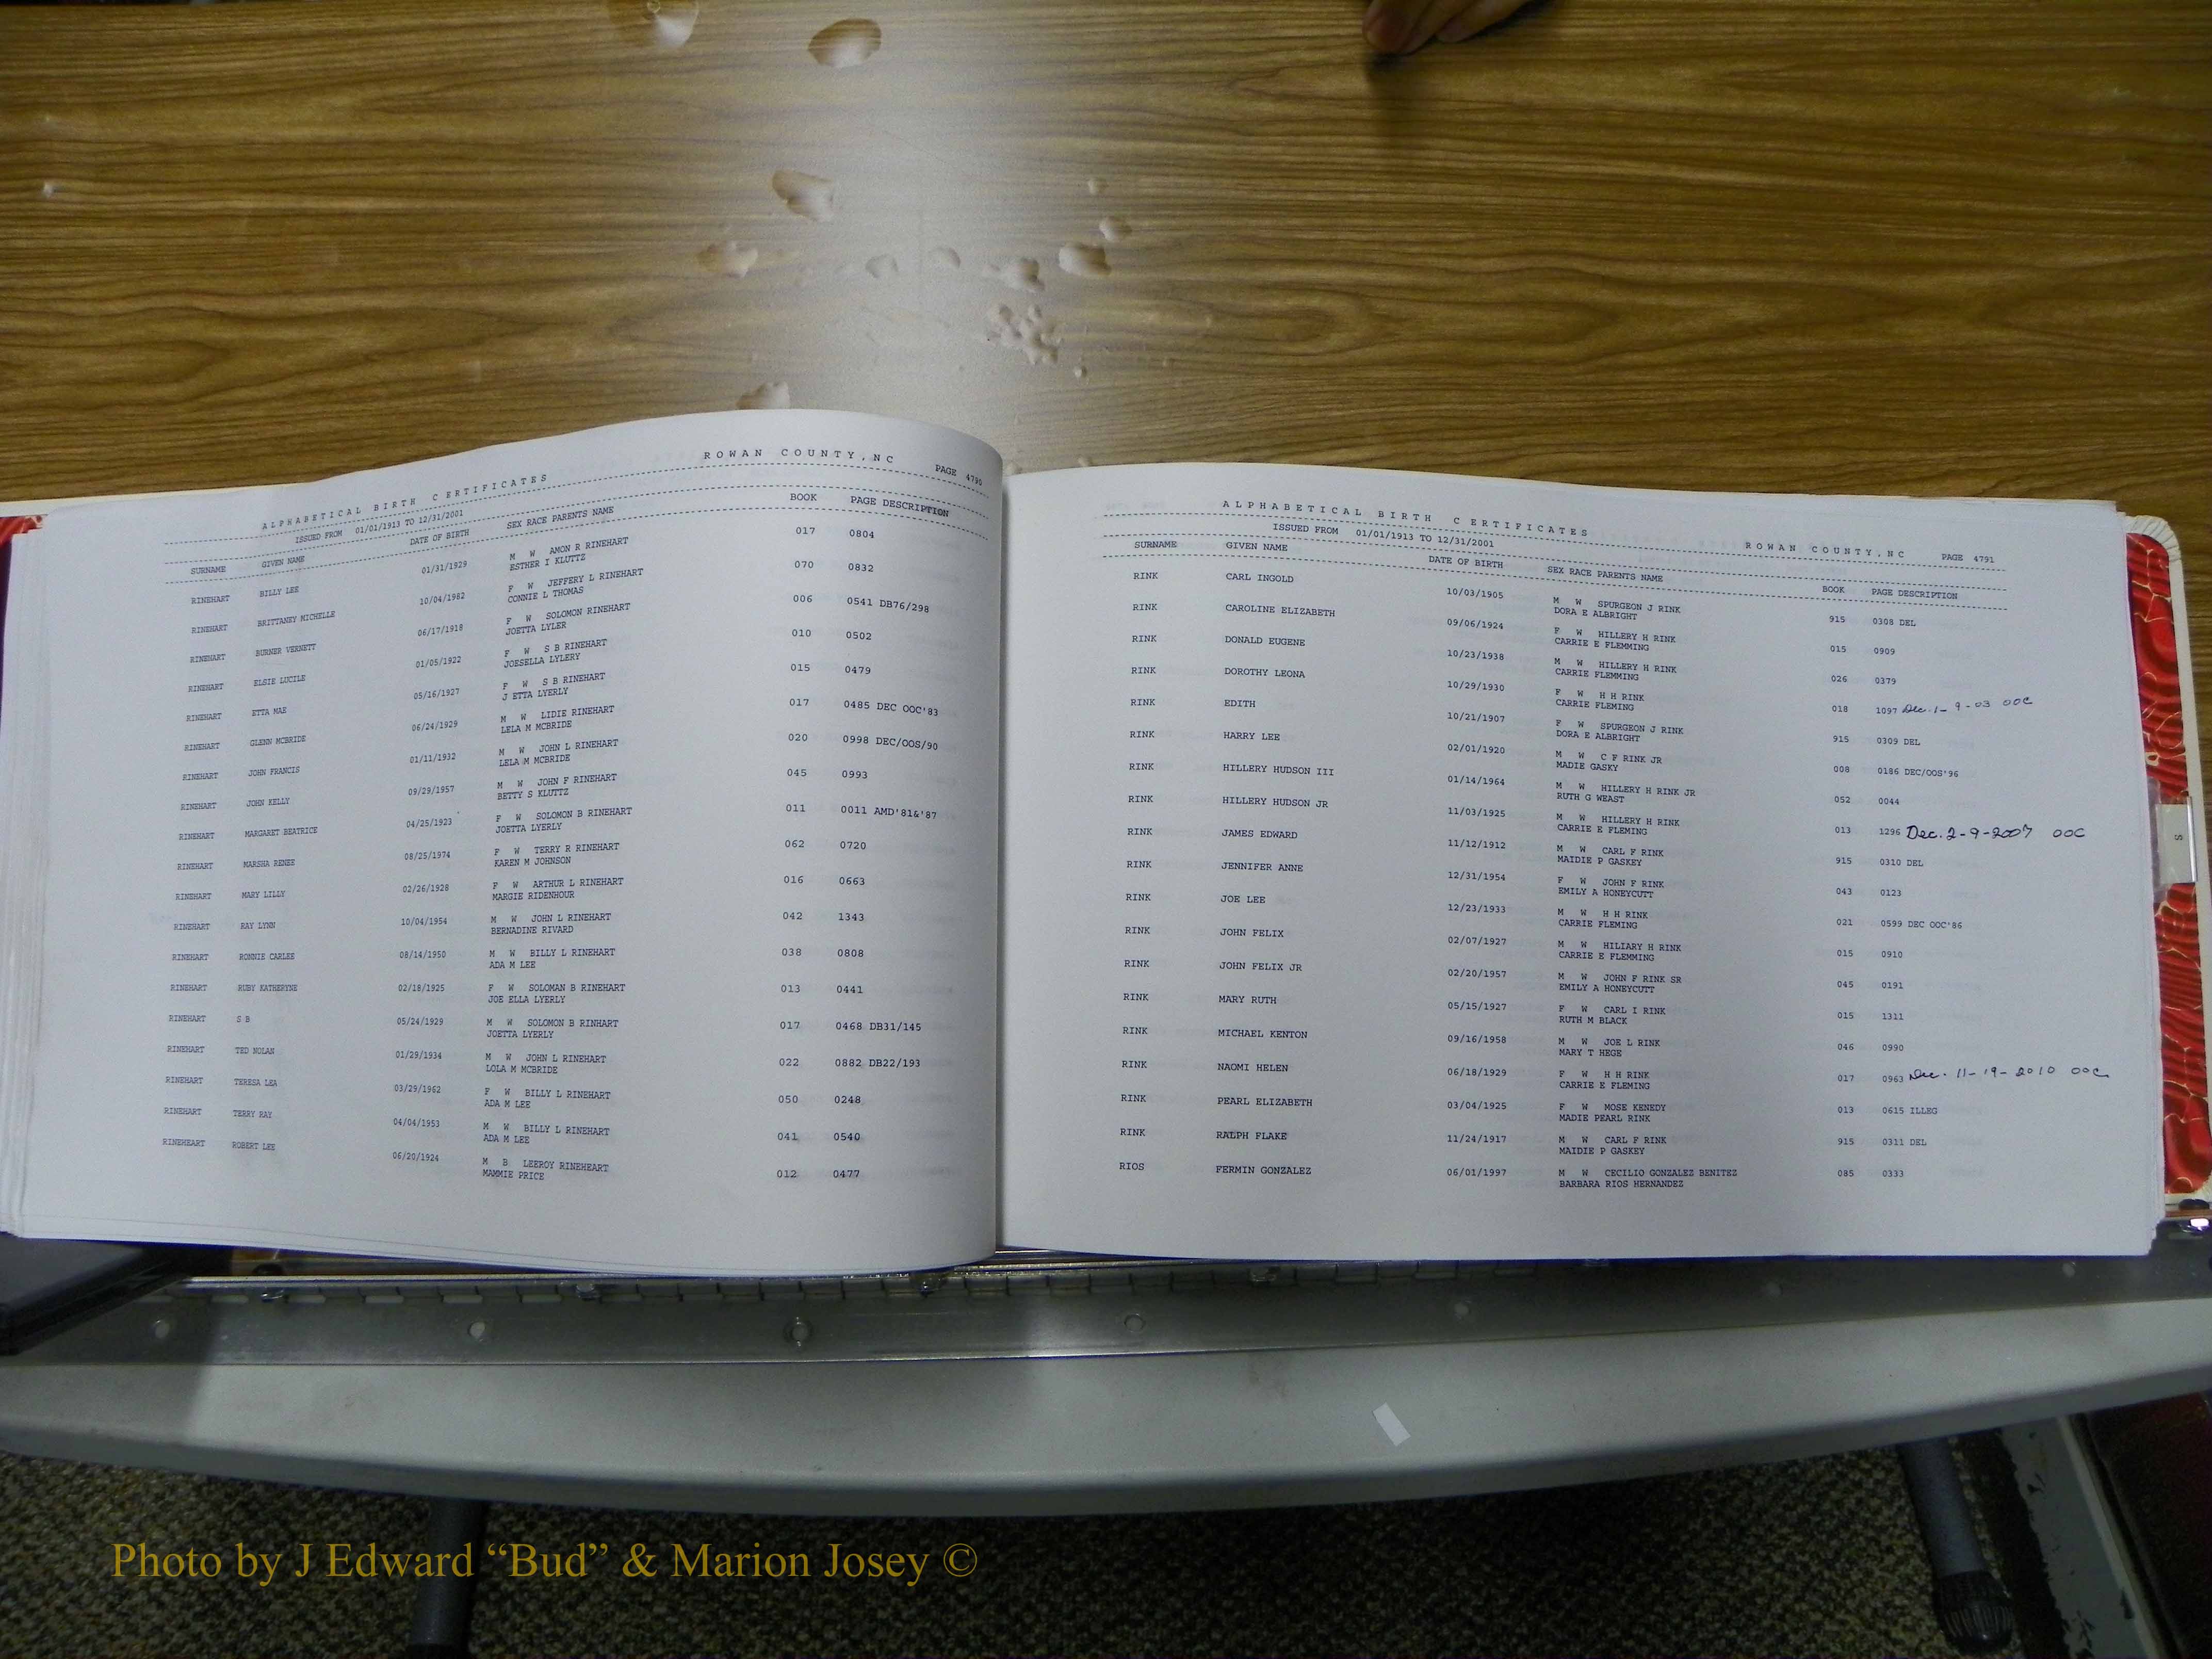 ALPHABETICAL BIRTH CERTIFICATES ROWAN COUNTY,NC PAGE 4790
ISSUED FROM 01/01/1913 TO 12/31/2001
SURNAME GIVEN NAME DATE OF BIRTH SEX RACE PARENTS NAME BOOK PAGE DESCRIPTION
RINEHART BILLY LEE 01/31/1929 M W AMON R RINEHART 017 0804
ESTHER I KLUTTZ
RINEHART BRITTANEY MICHELLE 10/04/1982 F W JEFFERY L RINEHART 070 0832
CONNIE L THOMAS
RINEHART BURNER VERNETT 06/17/1918 F W SOLOMON RINEHART 006 0541 DB76/298
JOETTA LYLER
RINEHART ELSIE LUCILE 01/05/1922 F W S B RINEHART 010 0502
JOESELLA LYLERY
RINEHART ETTA MAE 05/16/1927 F W S B RINEHART 015 0479
J ETTA LYERLY
RINEHART GLENN MCBRIDE 06/24/1929 M W LIDIE RINEHART 017 0485 DEC OOC'83
LELA M MCBRIDE
RINEHART JOHN FRANCIS 01/11/1932 M W JOHN L RINEHART 020 0998 DEC/OOS/90
LELA M MCBRIDE
RINEHART JOHN KELLY 09/29/1957 M W JOHN F RINEHART 045 0993
BETTY S KLUTTZ
RINEHART MARGARET BEATRICE 04/25/1923 F W SOLOMON B RINEHART 011 0011 AMD'81&'87
JOETTA LYERLY
RINEHART MARSHA RENEE 08/25/1974 F W TERRY R RINEHART 062 0720
KAREN M JOHNSON
RINEHART MARY LILLY 02/26/1928 F W ARTHUR L RINEHART 016 0663
MARGIE RIDENHOUR
RINEHART RAY LYNN 10/04/1954 M W JOHN L RINEHART 042 1343
BERNADINE RIVARD
RINEHART RONNIE CARLEE 08/14/1950 M W BILLY L RINEHART 038 0808
ADA M LEE
RINEHART RUBY KATHERYNE 02/18/1925 F W SOLOMAN B RINEHART 013 0441
JOE ELLA LYERLY
RINEHART S B 05/24/1929 M W SOLOMON B RINHART 017 0468 DB31/145
JOETTA LYERLY
RINEHART TED NOLAN 01/29/1934 M W JOHN L RINEHART 022 0882 DB22/193
LOLA M MCBRIDE
RINEHART TERESA LEA 03/29/1962 F W BILLY L RINEHART 050 0248
ADA M LEE
RINEHART TERRY RAY 04/04/1953 M W BILLY L RINEHART 041 0540
ADA M LEE
RINEHEART ROBERT LEE 06/20/1924 M B LEEROY RINEHEART 012 0477
MAMMIE PRICE
ALPHABETICAL BIRTH CERTIFICATES ROWAN COUNTY,NC PAGE 4791
ISSUED FROM 01/01/1913 TO 12/31/2001
SURNAME GIVEN NAME DATE OF BIRTH SEX RACE PARENTS NAME BOOK PAGE DESCRIPTION
RINK CARL INGOLD 10/03/1905 M W SPURGEON J RINK 915 0308 DEL
DORA E ALBRIGHT
RINK CAROLINE ELIZABETH 09/06/1924 F W HILLERY H RINK 015 0909
CARRIE E FLEMMING
RINK DONALD EUGENE 10/23/1938 M W HILLERY H RINK 026 0379
CARRIE FLEMMING
RINK DOROTHY LEONA 10/29/1930 F W H H RINK 018 1097 Dec. 1-9-03 OOC
CARRIE FLEMING
RINK EDITH 10/21/1907 F W SPURGEON J RINK 915 0309 DEL
DORA E ALBRIGHT
RINK HARRY LEE 02/01/1920 M W C F RINK JR 008 0186 DEC/OOS'96
MADIE GASKY
RINK HILLERY HUDSON III 01/14/1964 M W HILLERY H RINK JR 052 0044
RUTH G WEAST
RINK HILLERY HUDSON JR 11/03/1925 M W HILLERY H RINK 013 1296 Dec. 2-9-2007 OOC
CARRIE E FLEMING
RINK JAMES EDWARD 11/12/1912 M W CARL F RINK 915 0310 DEL
MAIDIE P GASKEY
RINK JENNIFER ANNE 12/31/1954 F W JOHN F RINK 043 0123
EMILY A HONEYCUTT
RINK JOE LEE 12/23/1933 M W H H RINK 021 0599 DEC OOC'86
CARRIE FLEMING
RINK JOHN FELIX 02/07/1927 M W HILIARY H RINK 015 0910
CARRIE E FLEMMING
RINK JOHN FELIX JR 02/20/1957 M W JOHN F RINK SR 045 0191
EMILY A HONEYCUTT
RINK MARY RUTH 05/15/1927 F W CARL I RINK 015 1311
RUTH M BLACK
RINK MICHAEL KENTON 09/16/1958 M W JOE L RINK 046 0990
MARY T HEGE
RINK NAOMI HELEN 06/18/1929 F W H H RINK 017 0963 Dec. 11-19-2010 OOC
CARRIE E FLEMING
RINK PEARL ELIZABETH 03/04/1925 F W MOSE KENEDY 013 0615 ILLEG
MADIE PEARL RINK
RINK RALPH FLAKE 11/24/1917 M W CARL F RINK 915 0311 DEL
MAIDIE P GASKEY
RIOS FERMIN GONZALEZ 06/01/1997 M W CECILIO GONZALEZ BENITEZ 085 0333
BARBARA RIOS HERNANDEZ
S
Photo by J Edward “Bud” & Marion Josey ©